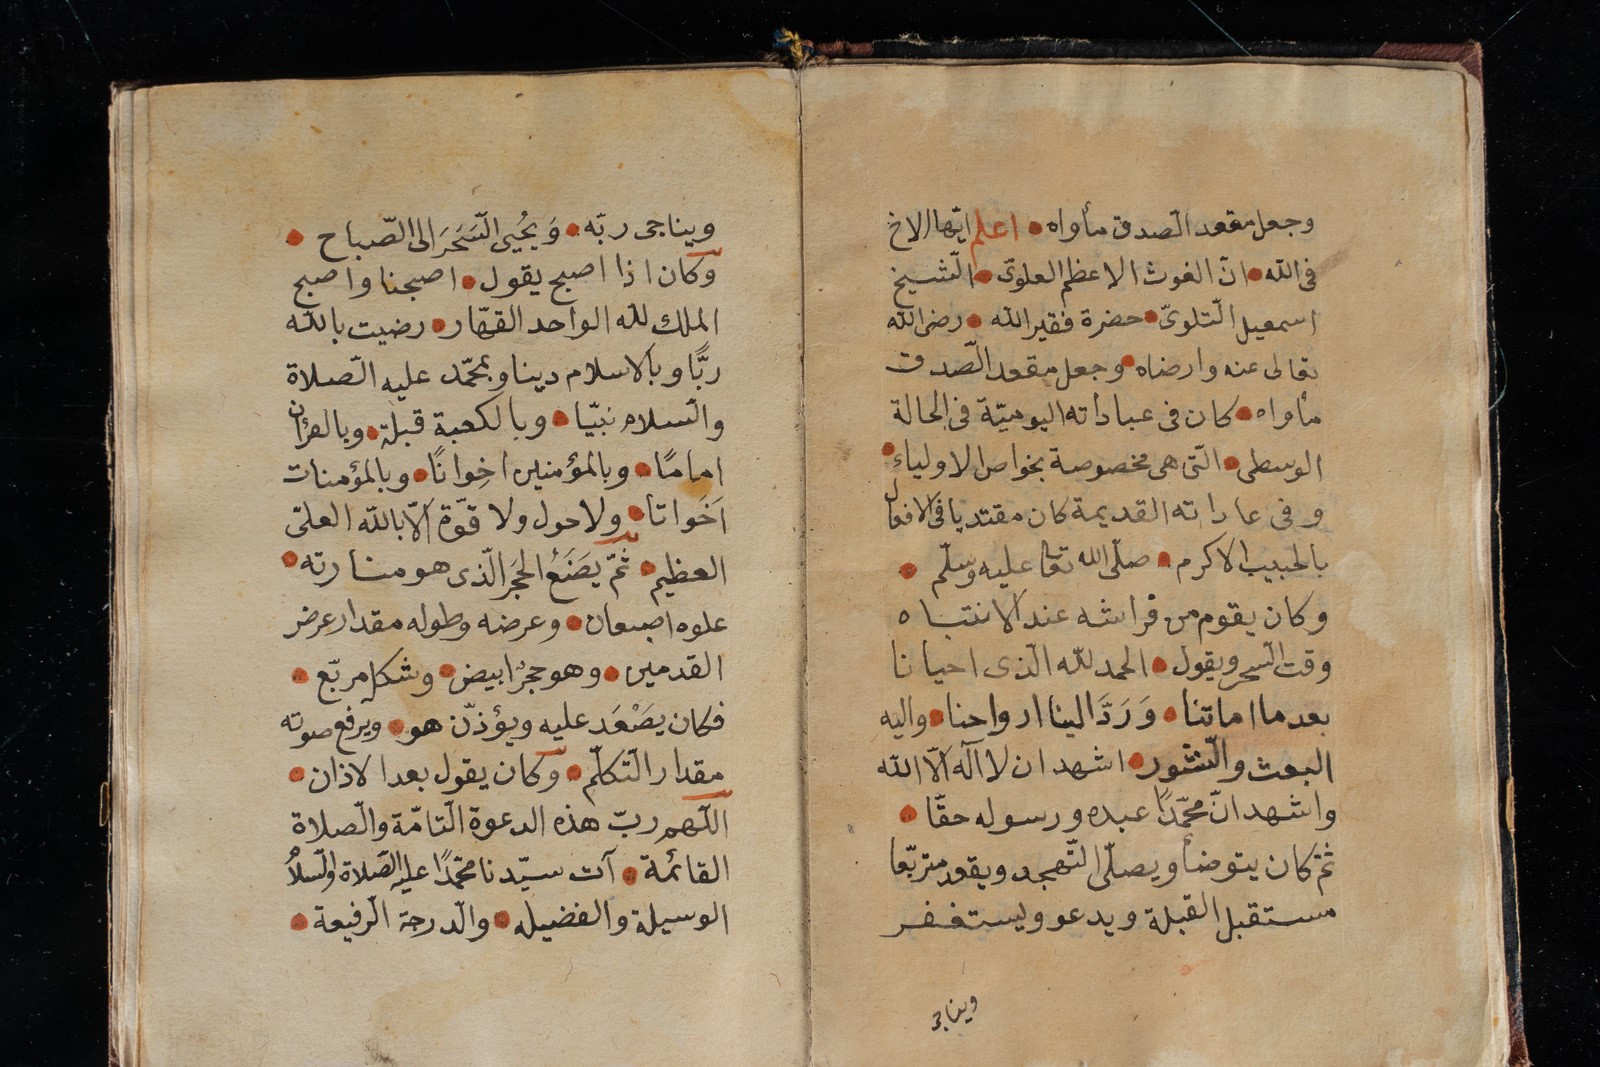 وجعل مقعد الصّدق مأواه • اعلم ايّها الاخ
فى الله • انّ الغوث الاعظم العلوىّ • الشّيخ
اسمعيل التّلوىّ • حضرة فقير الله • رضى الله
تعالى عنه وارضاه • وجعل مقعد الصّدق
مأواه • كان فى عباداته اليوميّة فى الحالة
الوسطى • الّتى هى مخصوصة بخواص الاولياء •
وفى عاداته القديمة كان مقتديا فى الافعال
بالحبيب الاكرم • صلّى الله تعا عليه وسلّم •
وكان يقوم من فراشه عند الانتباه
وقت السّحر ويقول • الحمد لله الّذى احيانا
بعد ما اماتنا • وَرَدَّ الينا ارواحنا • واليه
البعث والنّشور • اشهد ان لا اله الّا الله
واشهد انّ محمّدًا عبده ورسوله حقّا •
ثمّ كان يتوضأ ويصلّى التّهجد ويقعد متربّعا
مستقبل القبلة ويدعو ويستغفر
ويناجى
ويناجى ربّه • وَيُحْيِى السَّحَرَ الى الصّباح •
وكان اذا اصبح يقول • اصبحنا واصبح
الملك لله الواحد القهّار • رضيت بالله
ربًّا وبالاسلام دينا وبمحمّد عليه الصّلاة
والسّلام نبيّا • وبالكعبة قبلة • وبالقرأن
امامًا • وبالمؤمنين اخِوانًا • وبالمؤمنات
اَخَواتا • ولا حول ولا قوّة الّا بالله العلىّ
العظيم • ثُمّ يَصَنَعُ الحَجَر الّذى هو منارته •
علوه اصبعان • وعرضه وطوله مقدار عرض
القدمين • وهو حجرٌ ابيض • وشكل مربّع •
فكان يَصْعَد عليه ويؤذّن هو • ويرفع صوته
مقدار التّكلّم • وكان يقول بعد الاذان •
اللّهم ربّ هذه الدعوة التّامّة والصّلاة
القائمة • آت سيّدنا محمّدًا عليه الصّلاة والسّلام
الوسيلة والفضيله • والدّرجة الرّفيعة •